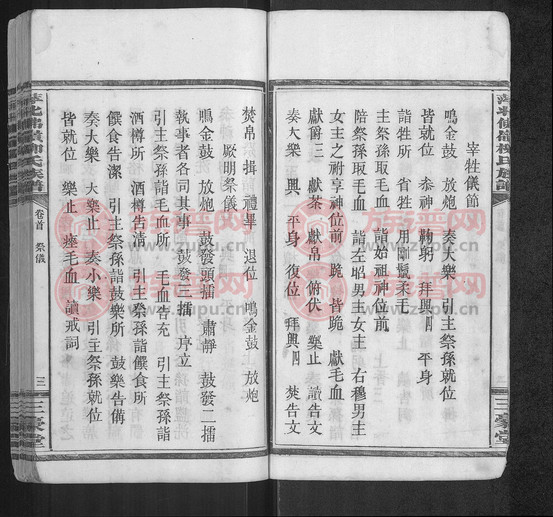 宰牲儀節
鳴金鼓 放炮 奏大樂 引主祭孫就位
皆就位 參神 鞠躬 拜興四 平身
詣牲所 省牲 用剛鬣柔毛
主祭孫取毛血 詣始祖神位前
陪祭孫取毛血 詣左昭男主女主 右穆男主
女主之祔享神位前 跪 皆跪 獻毛血
獻爵三 獻茶 獻帛 俯伏 樂止 讀告文
奏大樂 興 平身 復位 拜興四 焚告文
三
三豪堂
焚帛 揖 禮畢 退位 鳴金鼓 放炮
厥明祭儀
鳴金鼓 放炮 鼓發頭擂 肅靜 鼓發二擂
執事者各司其事 鼓發三擂 序立
引主祭孫詣毛血所 毛血告充 引主祭孫詣
酒樽所 酒樽告清 引主祭孫詣饌食所
饌食告潔 引主祭孫詣鼓樂所 鼓樂告備
奏大樂 大樂止 奏小樂 引主祭孫就位
皆就位 樂止 瘞毛血 讀戒詞
卷首 祭儀
三
三豪堂
族譜网
www.zupu.cn